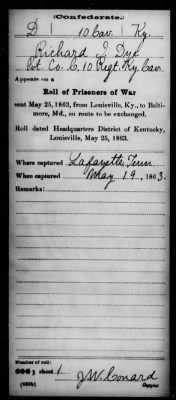 (Confederate.)
D 10 Cav. Ky.
Richard J. Dye
Pvt. Co. C, 10 Regt. Ky. Cav.
Appears on a
Roll of Prisoners of War
sent May 25, 1863, from Louisville, Ky., to Balti-
more, Md., en route to be exchanged.
Roll dated Headquarters District of Kentucky,
Louisville, May 25, 1863.
Where captured Lafayette, Tenn.
When captured May 19, 1863.
Remarks:
Number of roll:
sheet 1
J.W. Conard
Copyist.